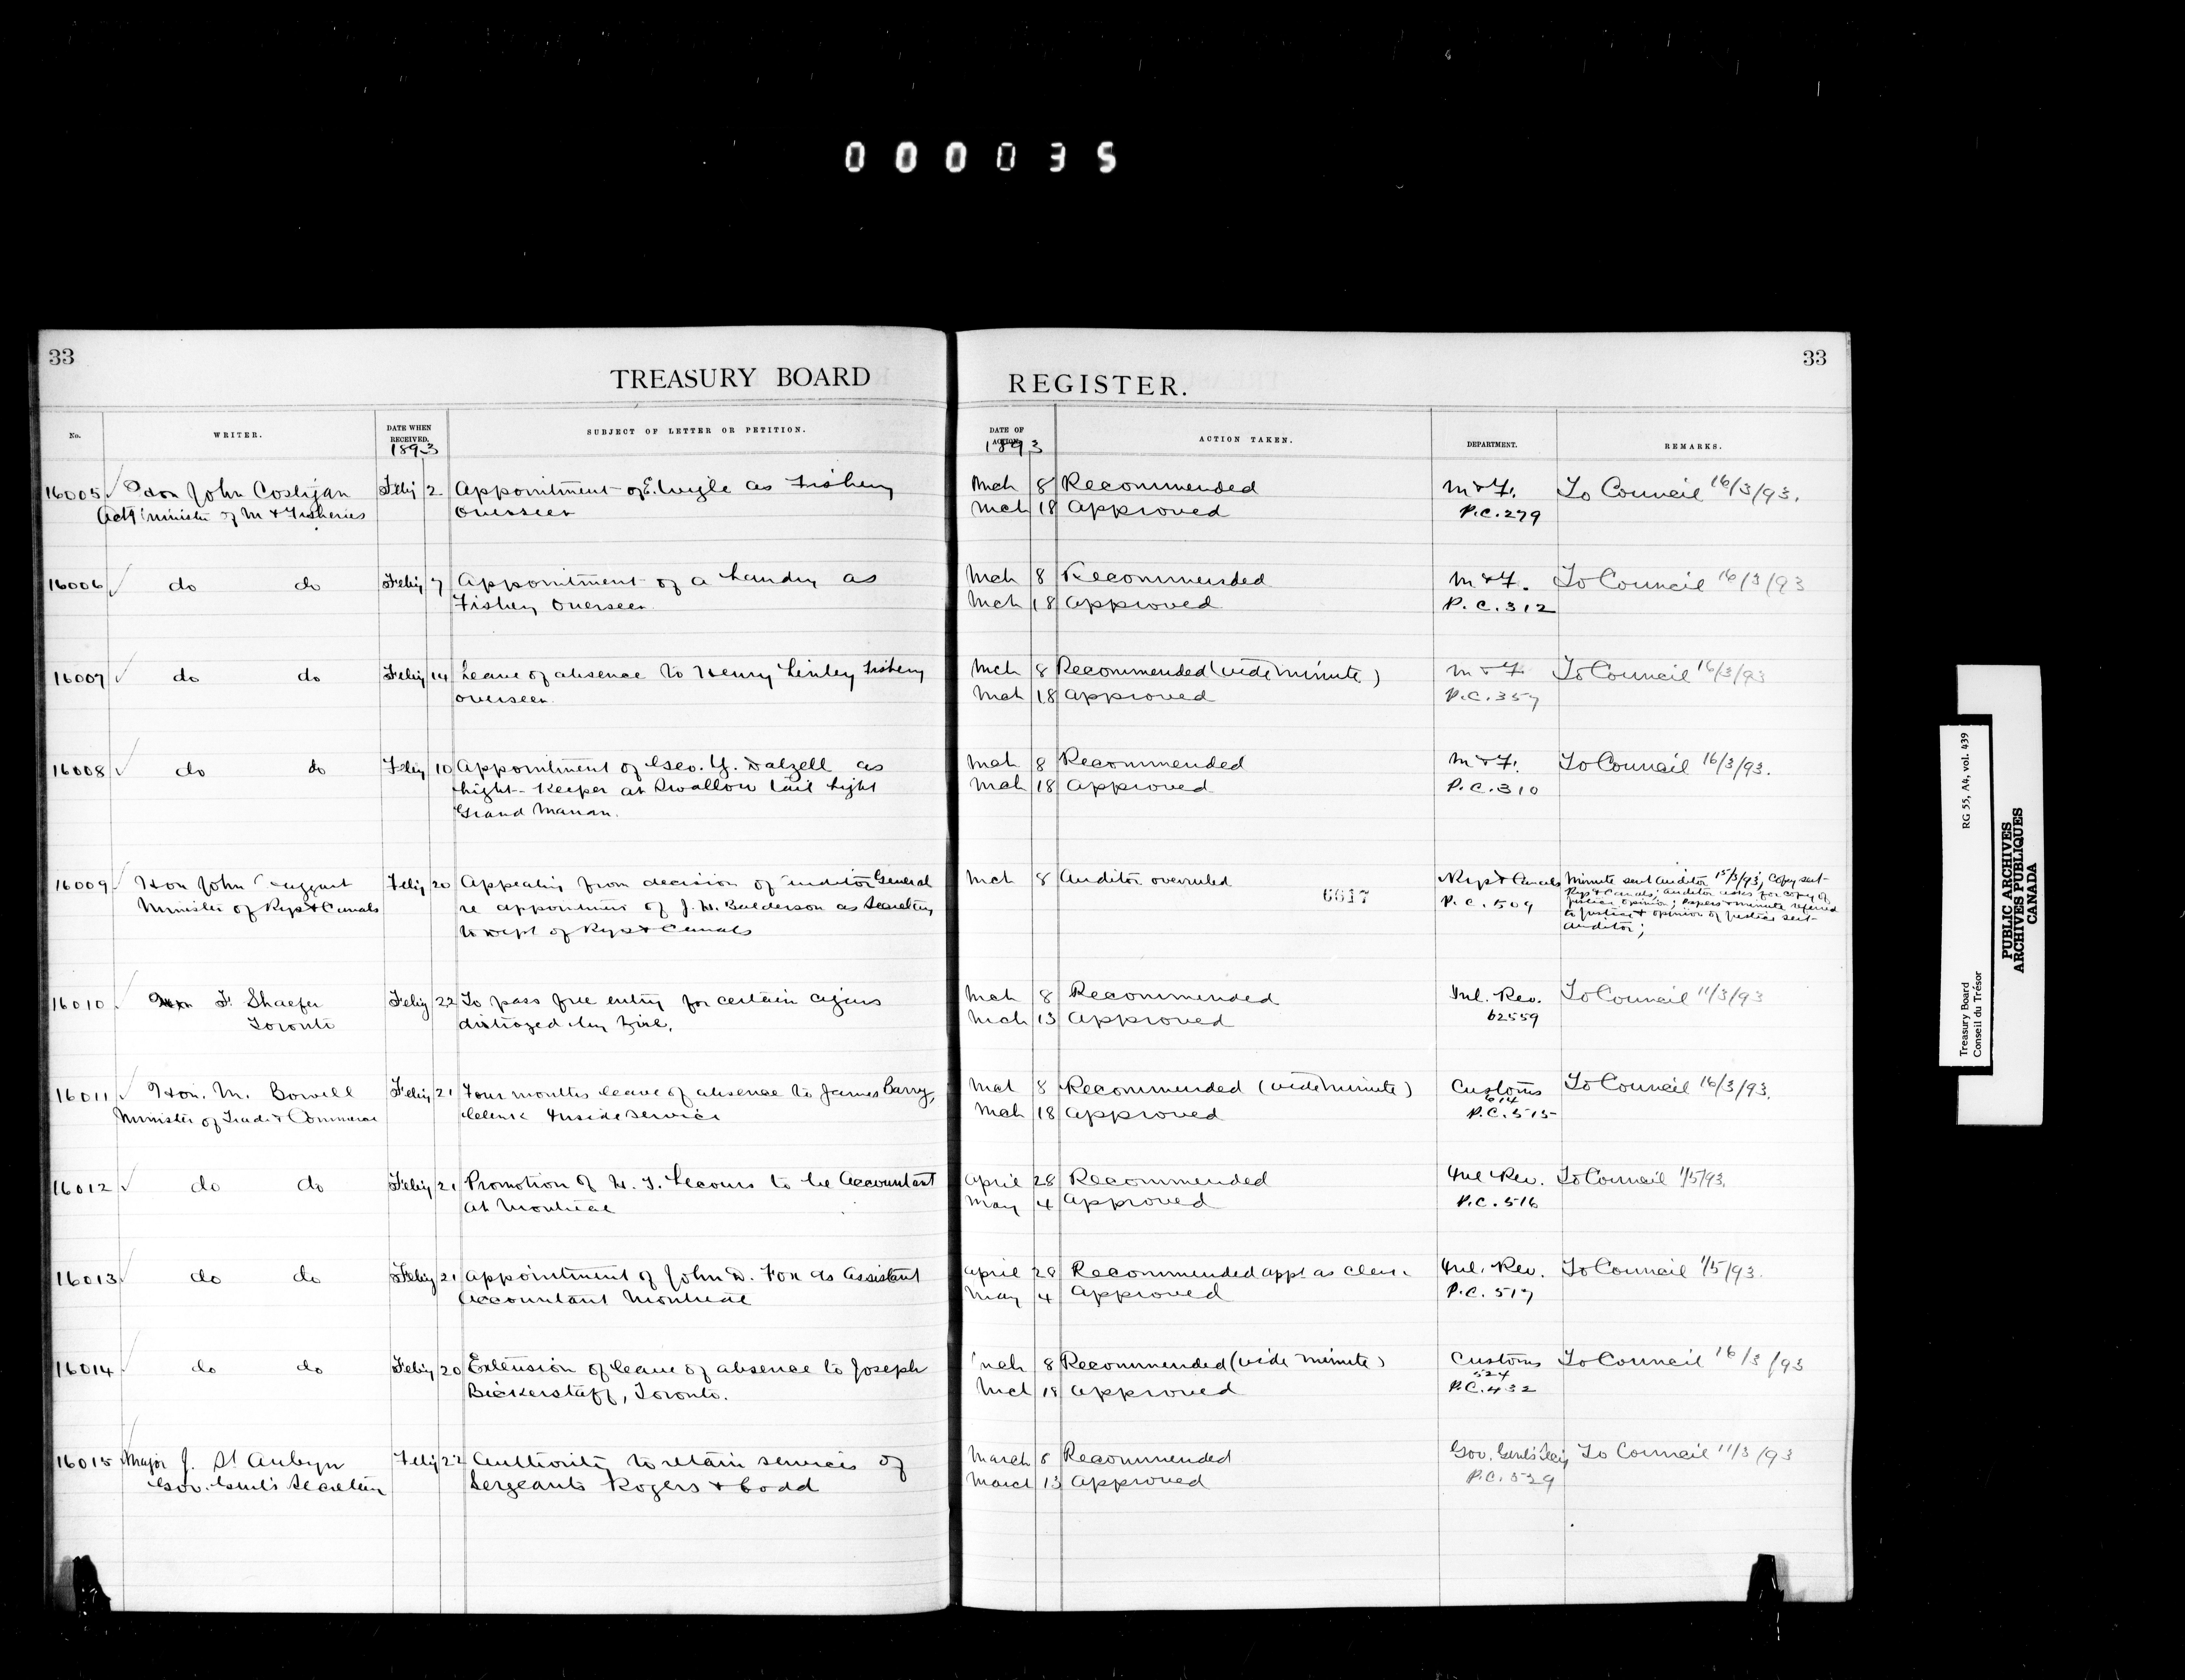 000035
33
33
TREASURY BOARD
REGISTER.
No.
WRITER.
DATE WHEN RECEIVED.
1893
SUBJECT OF LETTER OR PETITION.
DATE OF ACTION.
1893
ACTION TAKEN.
DEPARTMENT.
REMARKS.
16005 Hon John Costigan Feby 2 Appointment of E. Wigle as Fishery Mch 8 Recommended M & F. To Council 16/3/93.
Actg Minister of M & Fisheries Overseer Mch 18 Approved P.C. 279
16006 do do Feby 7 Appointment of A Landry as Mch 8 Recommended M & F. To Council 16/3/93
Fishery Overseer Mch 18 Approved P.C. 312
16007 do do Feby 14 Leave of absence to Henry Linley Fishery Mch 8 Recommended (vide minute) M & F To Council 16/3/93
Overseer. Mch 18 Approved P.C. 357
16008 do do Feby 10 Appointment of Geo. Y. Dalzell as Mch 8 Recommended M & F. To Council 16/3/93.
Light-Keeper at Swallow tail Light Mch 18 Approved P.C. 310
Grand Manan.
16009 Hon John Haggart Feby 20 Appealing from decision of Auditor General Mch 8 Auditor overruled Rys & Canals Minute sent Auditor 15/3/93; Copy sent
Minister of Rys & Canals re appointment of J. H. Balderson as Secretary 6617 P.C. 509 Rys & Canals; Auditor asks for copy of
to Dept of Rys & Canals Justice opinion; Papers & minute referred
to Justice & opinion of Justice sent
Auditor;
16010 F. Shaefer Feby 22 To pass free entry for certain cigars Mch 8 Recommended Inl. Rev. To Council 11/3/93
Toronto distroyed by fire. Mch 13 Approved 62559
16011 Hon. M. Bowell Feby 21 Four months leave of absence to James Barry, Mch 8 Recommended (vide minute) Customs To Council 16/3/93.
614
Minister of Trade & Commerce Clerk Inside Service Mch 18 Approved P.C. 515
16012 do do Feby 21 Promotion of H. T. Lecours to be Accountant April 28 Recommended Inl Rev. To Council 1/5/93.
At Montreal May 4 Approved P.C. 516
16013 do do Feby 21 Appointment of John D. Fox as Assistant April 28 Recommended appt as Clerk Inl. Rev. To Council 1/5/93.
Accountant Montreal May 4 Approved P.C. 517
16014 do do Feby 20 Extension of leave of absence to Joseph Mch 8 Recommended (vide minute) Customs To Council 16/3/93
524
Bickerstaff, Toronto. Mch 18 Approved P.C. 432
16015 Major J. St Aubyn Feby 22 Authority to retain services of March 8 Recommended Gov. Genl's Secy To Council 11/3/93
Gov. Genl's Secretary Sergeants Rogers & Codd March 13 Approved P.C. 529
Treasury Board RG 55, A4, vol. 439
Conseil du Trésor
PUBLIC ARCHIVES
ARCHIVES PUBLIQUES
CANADA